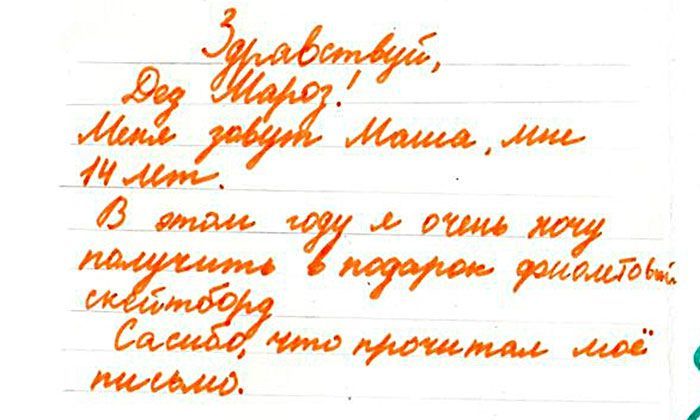 Здравствуй,
Дед Мароз!
Меня завут Маша, мне
14 лет.
В этом году я очень хочу
палучить в подарок фиолетовый
скейтборд
Сасибо, что прочитал моё
письмо.